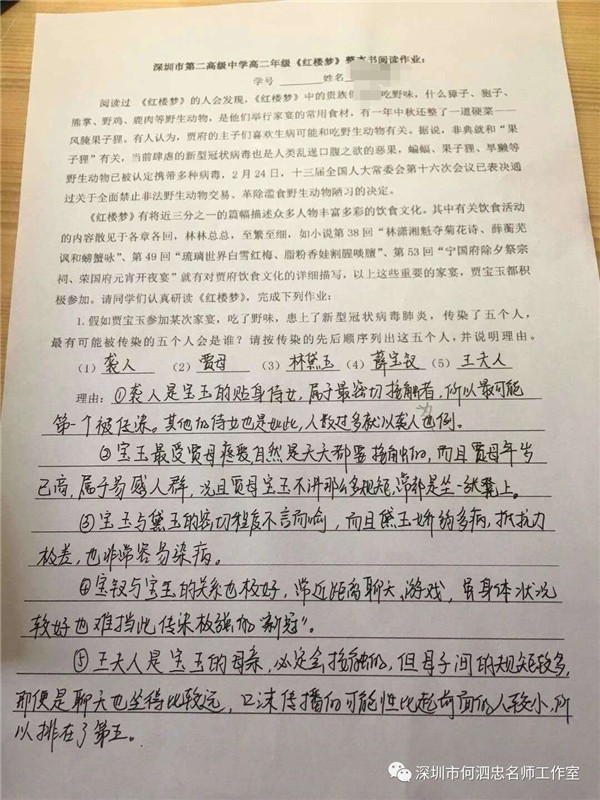 深圳市第二高级中学高二年级《红楼梦》整本书阅读作业：
学号 姓名
阅读过《红楼梦》的人会发现，《红楼梦》中的贵族们 吃野味，什么獐子、狍子、
熊掌、野鸡、鹿肉等野生动物，是他们举行家宴的常用食材，有一年中秋还整了一道硬菜——
风腌果子狸。有人认为，贾府的主子们喜欢生病可能和吃野生动物有关。据说，非典就和“果
子狸”有关，当前肆虐的新型冠状病毒也是人类乱送口腹之欲的恶果，蝙蝠、果子狸、旱獭等
野生动物已被认定携带多种病毒，2 月 24 日，十三届全国人大常委会第十六次会议已表决通
过关于全面禁止非法野生动物交易、革除滥食野生动物陋习的决定。
《红楼梦》有将近三分之一的篇幅描述众多人物丰富多彩的饮食文化。其中有关饮食活动
的内容散见于各章各回，林林总总，至繁至细，如小说第 38 回“林潇湘魁夺菊花诗、薛蘅芜
讽和螃蟹咏”、第 49 回“琉璃世界白雪红梅、脂粉香娃割腥啖膻”、第 53 回“宁国府除夕祭宗
祠、荣国府元宵开夜宴”就有对贾府饮食文化的详细描写，以上这些重要的家宴，贾宝玉都积
极参加。请同学们认真研读《红楼梦》，完成下列作业：
1.假如贾宝玉参加某次家宴，吃了野味，患上了新型冠状病毒肺炎，传染了五个人，
最有可能被传染的五个人会是谁？请按传染的先后顺序列出这五个人，并说明理由。
（1）袭人 （2）贾母 （3）林黛玉（4）薛宝钗（5）王夫人
理由：①袭人是宝玉的贴身侍女，属于最密切接触者，所以最可能
第一个被传染。其他的侍女也是如此，人数过多就以袭人为例。
②宝玉最受贾母疼爱自然是天天都要接触的，而且贾母年岁
已高，属于易感人群，况且贾母宝玉不讲那么多规矩，常都是坐一张凳上。
③宝玉与黛玉的密切程度不言而喻，而且黛玉娇弱多病，抵抗力
极差，也非常容易染病。
④宝钗与宝玉的关系也极好，常近距离聊天、游戏，虽身体状况
较好也难挡此传染极强的“新冠”。
⑤王夫人是宝玉的母亲，必定会接触的，但母子间的规矩较多，
即便是聊天也坐得比较远，口沫传播的可能性比起前面的人较小，所
以排在了第五。
深圳市何泗忠名师工作室